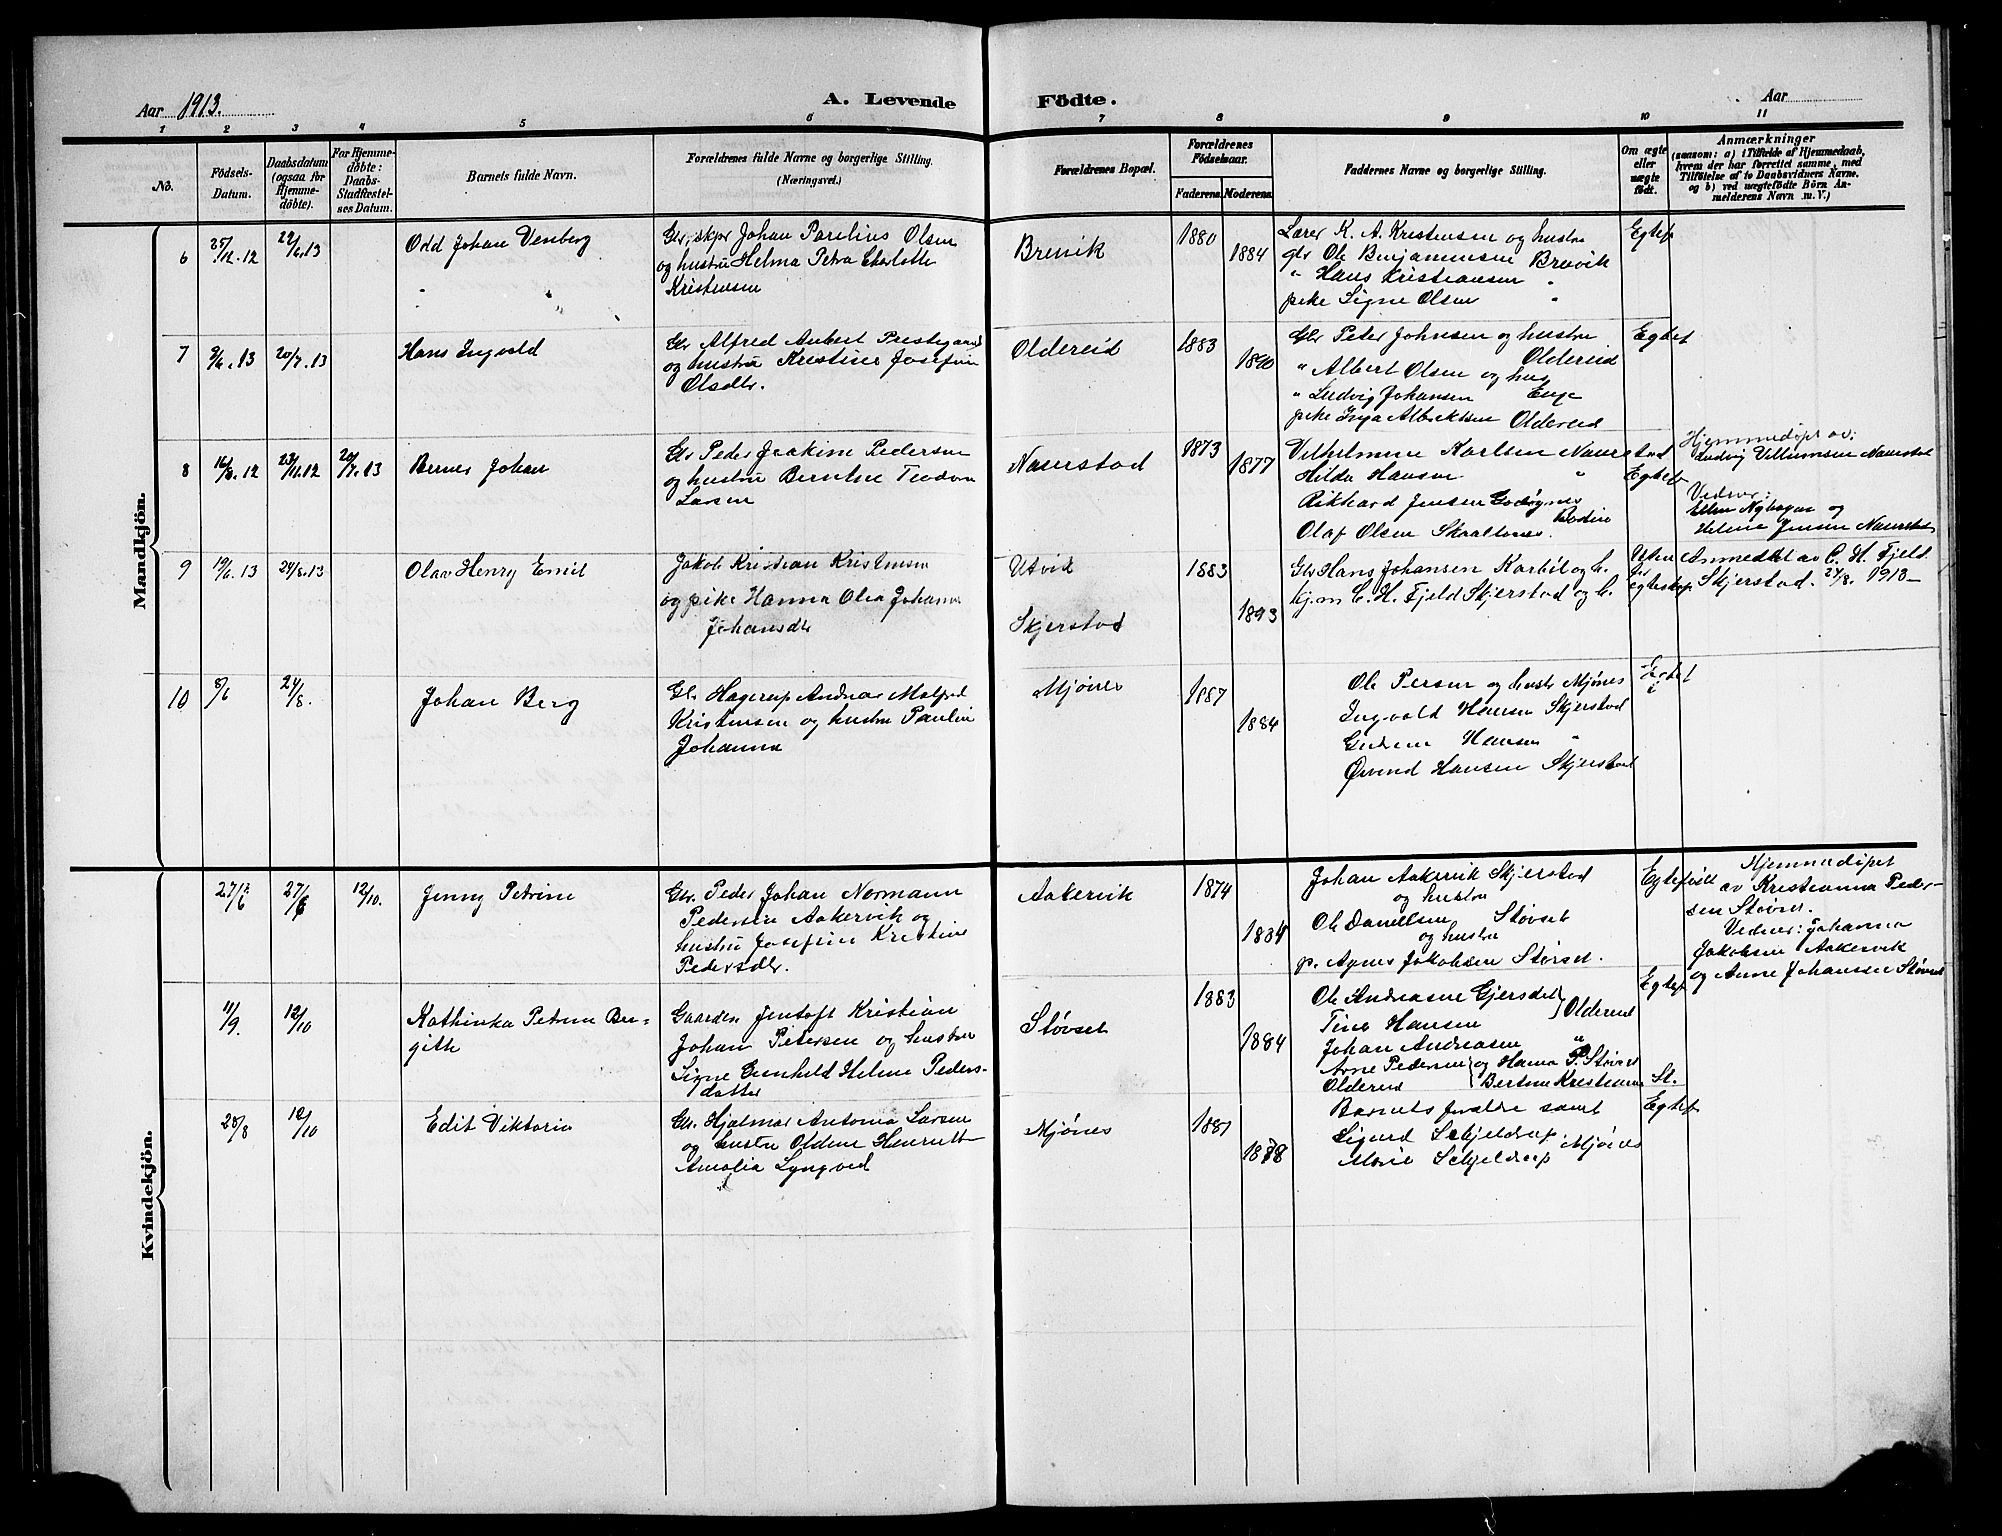 Aar 1913.
A. Levende Födte.
Aar
1 2 3 4 5 6 7 8 9 10 11
No.
Födsels-
Datum.
Daabsdatum
(ogsaa for
Hjemme-
döbte).
For Hjemme-
döbte:
Daabs-
Stadfæstel-
ses Datum.
Barnets fulde Navn.
Forældrenes fulde Navne og borgerlige Stilling.
(Næringsvei.)
Forældrenes Bopæl.
Forældrenes
Födselsaar.
Faderens. Moderens.
Faddernes Navne og borgerlige Stilling.
Om ægte
eller
uægte
födt.
Anmærkninger
(saasom: a) i Tilfælde af Hjemmedaab,
hvem der har forrettet samme, med
Tilföielse af to Daabsvidners Navne.
og b) ved uægtefödte Börn An-
melderens Navn m. V.)
Mandkjön.
6 25/12.12 22/6.13 Odd Johan Venberg
Gbr, skpr Johan Paulius Olsen
og hustru Helma Petra Charlotte
Kristensen
Brevik 1880 1884
Lærer K. A. Kristensen og hustru
gbr Ole Benjaminsen Brevik
" Hans Kristiansen "
pike Signe Olsen "
Egtef
7 9/6.13 20/7.13 Hans Ingvald
Gbr Alfred Anbert Prestegaard
og hustru Kristine Josefine
Olsdtr.
Oldereid 1883 1890
Gbr Peder Johnsen og hustru
Oldereid
" Albert Olsen og hus
" Ludvig Johansen Enge
pike Inga Albriktsen Oldereid
Egtef
8 16/8.12 23/11.12 20/7.13 Berner Johan
Gbr Peder Joakim Pedersen
og hustru Berntine Teodora
Larsen
Naurstad 1873 1877
Vilhelmine Karlsen Naurstad
Hilda Hansen "
Rikhard Jensen Godøynes
Bodin
Olaf Olsen
Egtef
Hjemmedøpt av:
Ludvig Villumsen Naurstad
Vidner:
Ellen Nyhagen og
Helene Jensen Naurstad
9 19/6.13 24/8.13 Olav Henry Emil
Jakob Kristian Kristensen
og pike Hanna Olea Johanna
Johansdtr
Utvik
Skjerstad
1883 1893
Gbr Hans Johansen Karbøl og h.
kjm C. H. Fjeld Skjerstad og h.
Uten
for
egteskap
Anmeldt av C. H. Fjeld
Skjerstad. 24/8. 1913
10 8/6 24/8. Johan Berg
Gbr Hagerup Andreas Malfred
Kristensen og hustru Pauline
Johanna
Mjønes 1887 1884
Ole Persen og hustr Mjønes
Ingvald Hansen Skjerstad
Gudrun Hansen "
Øivind Hansen Skjerstad
Egtef
Kvindekjön.
27/6 27/6 12/10. Jenny Petrine
Gbr. Peder Johan Normann
Pedersen Aakervik og
hustru Josefine Kristine
Pedersdtr.
Aakervik 1874 1884
Johan Aakervik Skjerstad
og hustru
Ole Danielsen Støvset
og hustru
p. Agnes Jakobsen Støvset.
Egtefødt
Hjemmedøpt
av Kristianna Peder-
sen Støvset.
Vidner: Johanna
Jakobsen Aakervik
og Anne Johansen Støvset
11/9. 12/10 Kathinka Petrine Bir-
gith
Gaardbr Jentoft Kristian
Johan Petersen og hustru
Signe Gunhild Helene Peders-
datter
Støvset 1883 1884
Ole Andreasen Gjersdal
Tine Hansen } Oldereid
Johan Andreasen "
Arne Pedersen og Hanna P. Støvset
Oldereid Bertine Kristiansen St.
Egtef
28/8 12/10 Edit Viktoria
Gbr. Hjalmar Antonia Larsen
og hustru Oldine Henriette
Amalia Lyngved
Mjønes 1881 1878
Barnets forældre samt
Sigurd Schjeldrup
Marie Schjeldrup Mjønes
Egtef